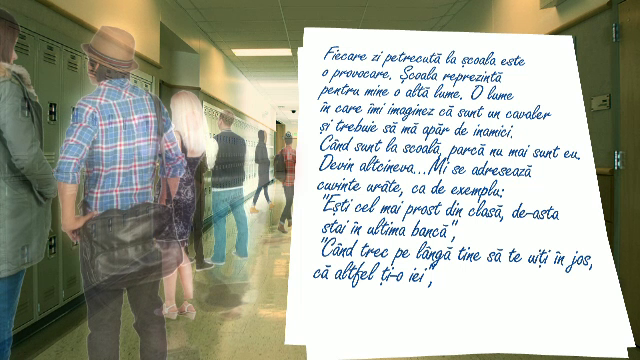 Fiecare zi petrecută la școala este
o provocare. Școala reprezintă
pentru mine o altă lume. O lume
în care îmi imaginez că sunt un cavaler
și trebuie să mă apăr de inamici.
Când sunt la școală, parcă nu mai sunt eu.
Devin altcineva...Mi se adresează
cuvinte urâte, ca de exemplu:
"Ești cel mai prost din clasă, de-asta
stai în ultima bancă",
"Când trec pe lângă tine să te uiți în jos,
că altfel ți-o iei",